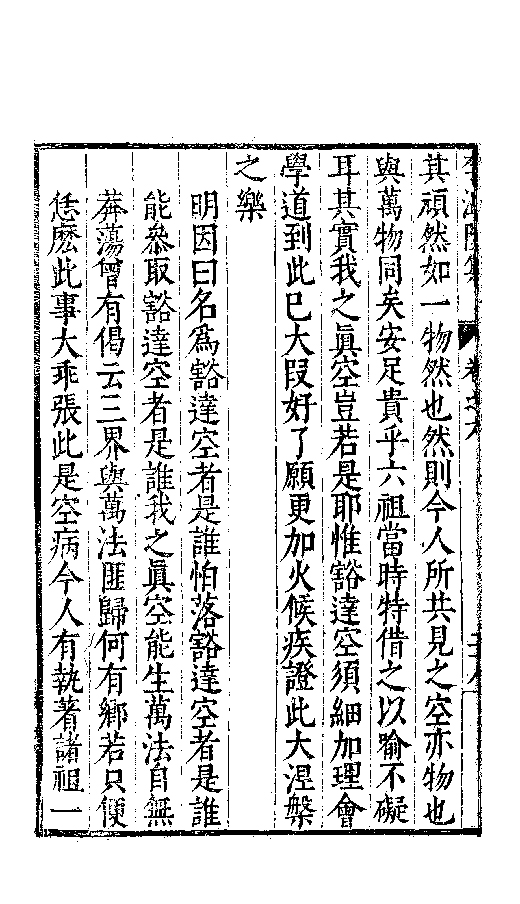 李溫陵集 卷之六
其頑然如一物然也然則今人所共見之空亦物也
與萬物同矣安足貴乎六祖當時特借之以喻不礙
耳其實我之眞空豈若是耶惟豁達空須細加理會
學道到此已大段好了願更加火候疾證此大涅槃
之樂
明因曰名爲豁達空者是誰怕落豁達空者是誰
能叅取豁達空者是誰我之眞空能生萬法自無
莽蕩曾有偈云三界與萬法匪歸何有鄉若只便
恁麽此事大乖張此是空病今人有執著諸祖一